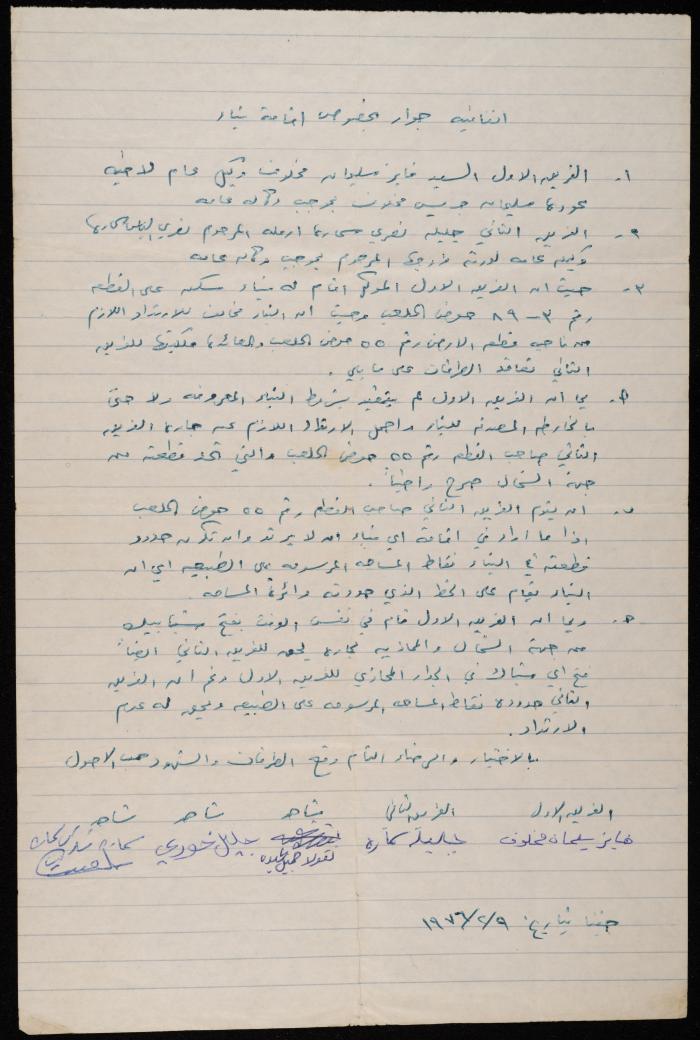 اتفاقية جوار بخصوص اقامة بناء
١- الفريق الاول السيد فايز سليمان مخلوف وكيل عام لاخيه
سليمان جريس مخلوف بموجب وكاله عامه
٢- الفريق الثاني جليله نصري سمارة ارمله المرحوم نصري الياس سمارة
وكيله عامه لورثة زوجها المرحوم بموجب وكاله عامه
٣- حيث ان الفريق الاول الموكل اقام له بناء سكنه على القطعه
رقم ٣-٨٩ حوض الملعب وحيث ان البناء مخالف للارتداد اللازم
من ناحية قطعه الارض رقم ٥٥ حوض الملعب والعائده ملكيتها للفريق
الثاني تعاقد الطرفان على ما يلي .
بما ان الفريق الاول لم يتقيد بشروط البناء المعروفه ولا حتى
بالخارطه المصدقه للبناء واهمل الارتداد اللازم عن جاره الفريق
الثاني صاحب القطعه رقم ٥٥ حوض الملعب والتي تحد قطعته من
جهة الشمال
ب- ان يقوم الفريق الثاني صاحب القطعه رقم ٥٥ حوض الملعب
اذا ما اراد في اقامة اي بناء ان لا يرتد وان تكون حدود
قطعته في البناء نقاط المساحه المرسومه على الطبيعه اي ان
البناء يقام على الخط الذي حددته دائرة المساحه
ج- وبما ان الفريق الاول قام في نفس الوقت بفتح شبابيك
من جهة الشمال والمحاذيه لجاره يحق للفريق الثاني ايضاً
فتح اي شباك في الجدار المحاذي للفريق الاول رغم ان الفريق
الثاني حدوده نقاط المساحه المرسومه على الطبيعه ويحق له عدم
الارتداد .
بالاختيار والرضاء التام وقع الطرفان والشهود حسب الاصول
الفريق الاول الفريق الثاني شاهد شاهد شاهد
فايز سليمان مخلوف جليلة سمارة جليل خوري
بتاريخ ١٩٧٦/٢/٩